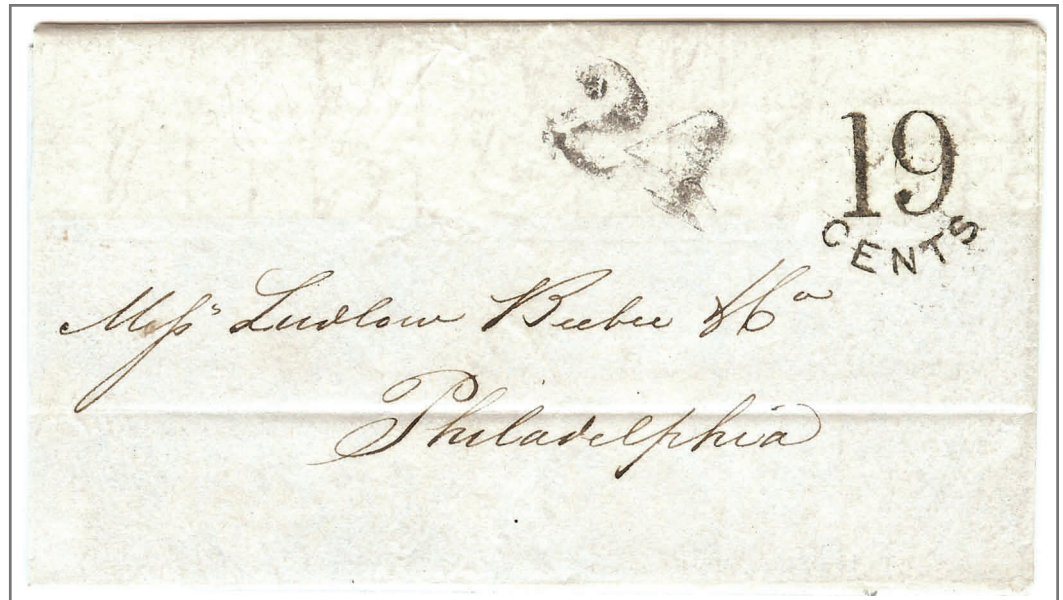 24
19
CENTS
Mess^rs Ludlow Beebee & Co
Philadelphia